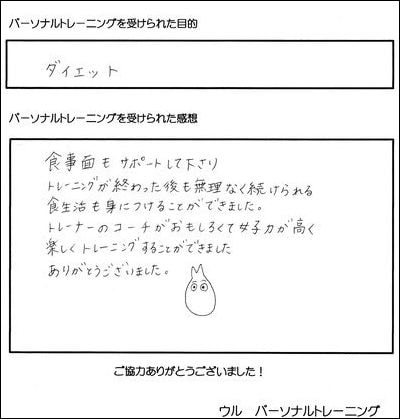 パーソナルトレーニングを受けられた目的
ダイエット
パーソナルトレーニングを受けられた感想
食事面もサポートして下さり
トレーニングが終わった後も無理なく続けられる
食生活も身につけることができました。
トレーナーのコーチがおもしろくて女子力が高く
楽しくトレーニングすることができました
ありがとうございました。
ご協力ありがとうございました！
ウル　パーソナルトレーニング